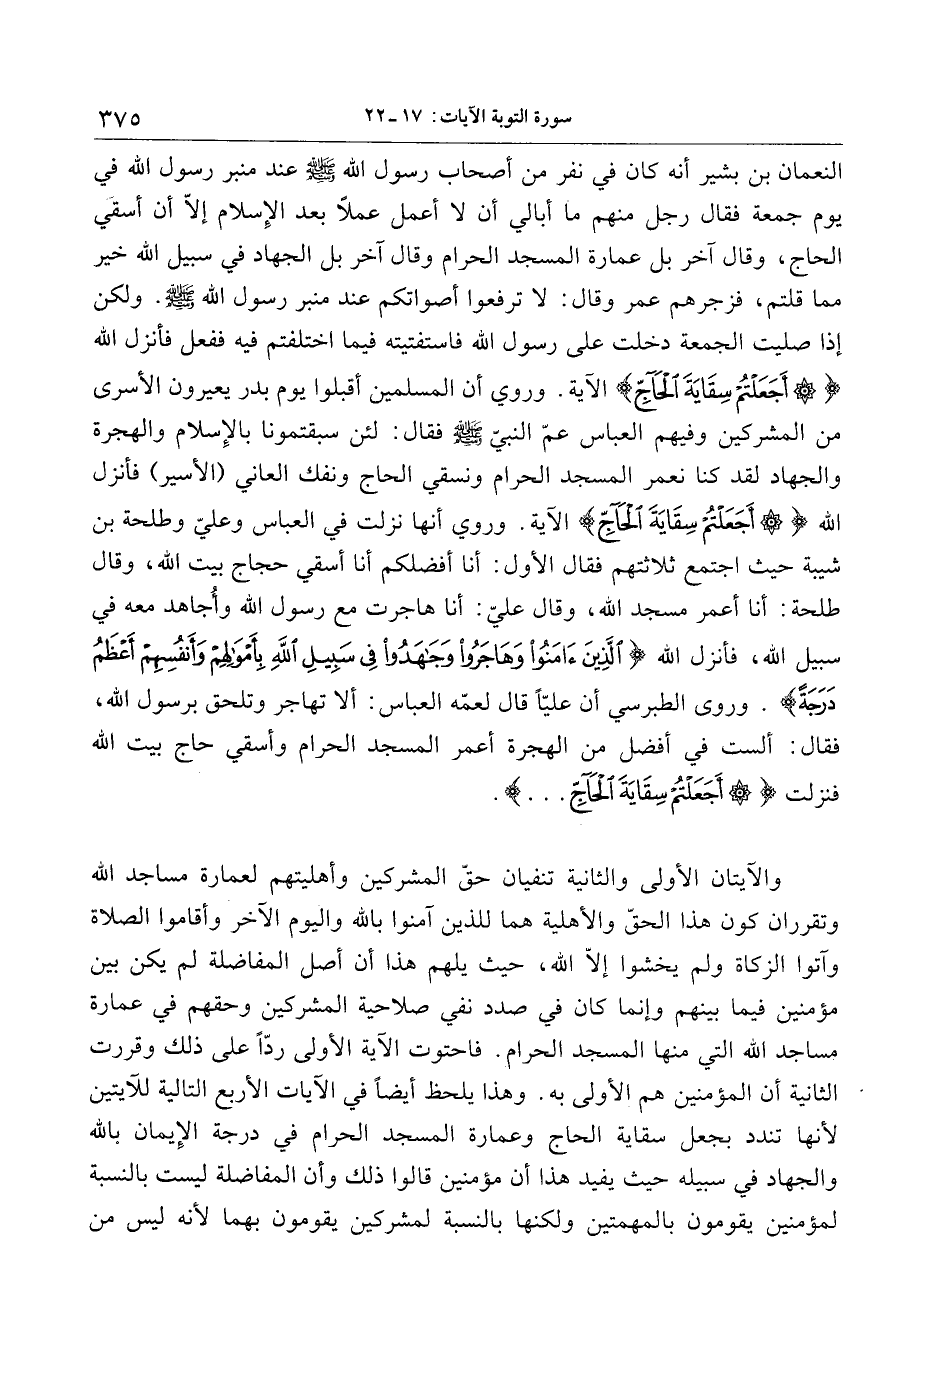 سورة التوبة الآيات: ١٧ ـ ٢٢ ٣٧٥
النعمان بن بشير أنه كان في نفر من أصحاب رسول الله ﷺ عند منبر رسول الله في
يوم جمعة فقال رجل منهم ما أبالي أن لا أعمل عملاً بعد الإسلام إلاّ أن أسقي
الحاج، وقال آخر بل عمارة المسجد الحرام وقال آخر بل الجهاد في سبيل الله خير
مما قلتم، فزجرهم عمر وقال: لا ترفعوا أصواتكم عند منبر رسول الله ﷺ. ولكن
إذا صليت الجمعة دخلت على رسول الله فاستفتيته فيما اختلفتم فيه ففعل فأنزل الله
﴿ ۞ أَجَعَلْتُمْ سِقَايَةَ ٱلْحَآجِّ﴾ الآية. وروي أن المسلمين أقبلوا يوم بدر يعيرون الأسرى
من المشركين وفيهم العباس عمّ النبيّ ﷺ فقال: لئن سبقتمونا بالإسلام والهجرة
والجهاد لقد كنا نعمر المسجد الحرام ونسقي الحاج ونفك العاني (الأسير) فأنزل
الله ﴿ ۞ أَجَعَلْتُمْ سِقَايَةَ ٱلْحَآجِّ﴾ الآية. وروي أنها نزلت في العباس وعليّ وطلحة بن
شيبة حيث اجتمع ثلاثتهم فقال الأول: أنا أفضلكم أنا أسقي حجاج بيت الله، وقال
طلحة: أنا أعمر مسجد الله، وقال عليّ: أنا هاجرت مع رسول الله وأُجاهد معه في
سبيل الله، فأنزل الله ﴿ ٱلَّذِينَ ءَامَنُوا۟ وَهَاجَرُوا۟ وَجَٰهَدُوا۟ فِى سَبِيلِ ٱللَّهِ بِأَمْوَٰلِهِمْ وَأَنفُسِهِمْ أَعْظَمُ
دَرَجَةً﴾ . وروى الطبرسي أن عليّاً قال لعمّه العباس: ألا تهاجر وتلحق برسول الله،
فقال: ألست في أفضل من الهجرة أعمر المسجد الحرام وأسقي حاج بيت الله
فنزلت ﴿ ۞ أَجَعَلْتُمْ سِقَايَةَ ٱلْحَآجِّ. . .﴾.
والآيتان الأولى والثانية تنفيان حقّ المشركين وأهليتهم لعمارة مساجد الله
وتقرران كون هذا الحقّ والأهلية هما للذين آمنوا بالله واليوم الآخر وأقاموا الصلاة
وآتوا الزكاة ولم يخشوا إلاّ الله، حيث يلهم هذا أن أصل المفاضلة لم يكن بين
مؤمنين فيما بينهم وإنما كان في صدد نفي صلاحية المشركين وحقهم في عمارة
مساجد الله التي منها المسجد الحرام. فاحتوت الآية الأولى ردّاً على ذلك وقررت
الثانية أن المؤمنين هم الأولى به. وهذا يلحظ أيضاً في الآيات الأربع التالية للآيتين
لأنها تندد بجعل سقاية الحاج وعمارة المسجد الحرام في درجة الإيمان بالله
والجهاد في سبيله حيث يفيد هذا أن مؤمنين قالوا ذلك وأن المفاضلة ليست بالنسبة
لمؤمنين يقومون بالمهمتين ولكنها بالنسبة لمشركين يقومون بهما لأنه ليس من